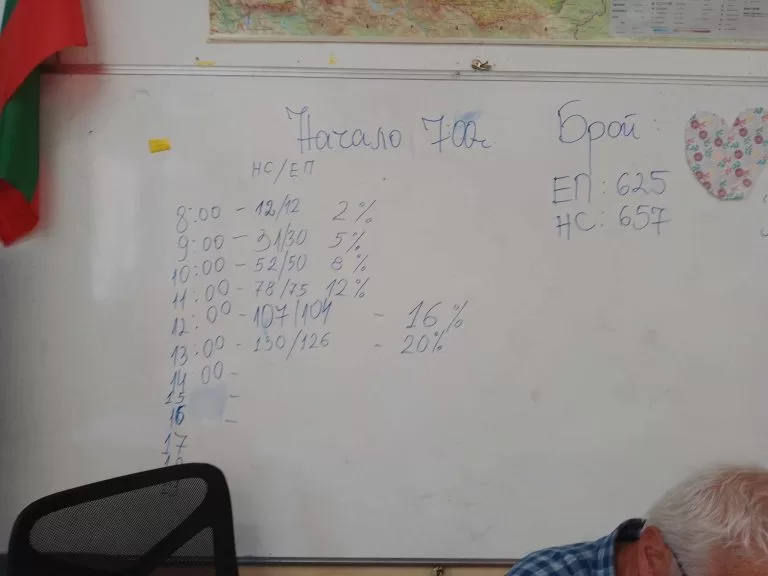 Начало 7:00ч
НС/ЕП
8:00 - 12/12 2%
9:00 - 31/30 5%
10:00 - 52/50 8%
11:00 - 78/75 12%
12:00 - 107/101 - 16%
13:00 - 130/126 - 20%
14:00 -
15 -
16 -
17
Брой:
ЕП: 625
НС: 657